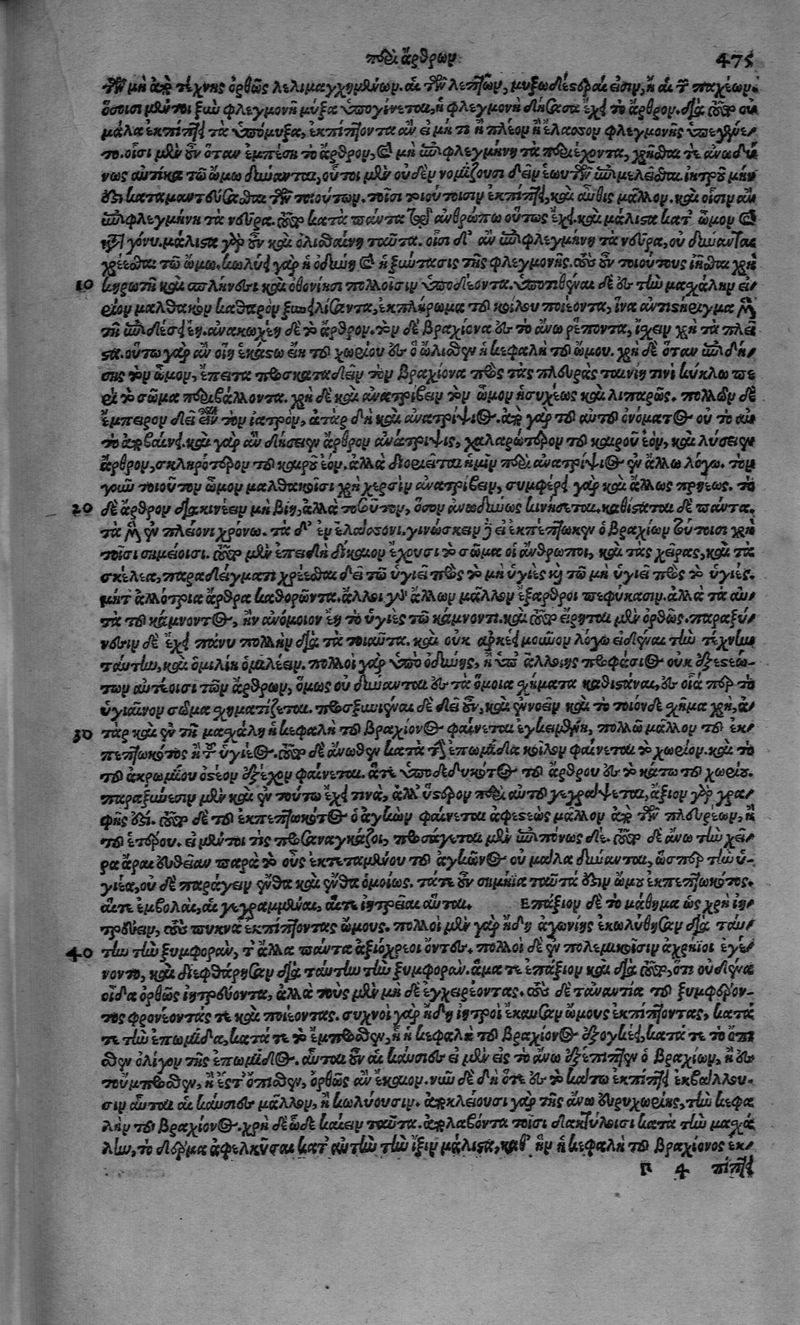 περὶ ἄρθρων. 475
τῶν μὴ ἀπὸ τέχνης ὀρθῶς λελιμαγχημένων. αἱ τῶν λεπτῶν, μυξωδέστεραί εἰσιν, ἢ αἱ τῶν παχέων.
ὁσοισι μέντοι ξὺν φλεγμονῇ μύξα ὑπογίνεται, ἡ φλεγμονὴ δήσασα ἔχει τὸ ἄρθρον. διὰ τοῦτο οὐ
μάλα ἐκπίπτει τὰ ὑπόμυξα, ἐκπίπτοντα ἂν εἰ μή τι ἢ πλέον ἢ ἔλασσον φλεγμονῆς ὑπεγένε-
το. οἷσι μὲν οὖν ὅταν ἐμπέσῃ τὸ ἄρθρον, καὶ μὴ ἐπιφλεγμήνῃ τὰ περιέχοντα, χρῆσθαί τε ἀνωδύ-
νως αὐτίκα τῷ ὤμῳ δύνανται, οὗτοι μὲν οὐδὲν νομίζουσι δεῖν ἑωυτῶν ἐπιμελεῖσθαι. ἰητροῦ μήν
ἐστι καταμαντεύσασθαι τῶν τοιούτων. τοῖσι τοιούτοισιν ἐκπίπτει, καὶ αὖθις μᾶλλον. καὶ οἷσιν ἂν
ἐπιφλεγμήνῃ τὰ νεῦρα. τοῦτο κατὰ πάντα τὰ ἄρθρα οὕτως ἔχει. καὶ μάλιστα κατ' ὦμον καὶ
κατὰ γόνυ. μάλιστα γὰρ οὖν καὶ ὀλισθαίνει ταῦτα. οἷσι δ' ἂν ἐπιφλεγμήνῃ τὰ νεῦρα, οὐ δύνανται
χρέεσθαι τῷ ὤμῳ. κωλύει γὰρ ἡ ὀδύνη καὶ ἡ ξύντασις τῆς φλεγμονῆς. τοὺς οὖν τοιούτους ἰῆσθαι χρὴ
10 κηρωτῇ καὶ σπλήνεσι καὶ ὀθονίοισι πολλοῖσιν ἐπιδέοντα. ὑποτιθέναι δὲ ἐς τὴν μασχάλην εἴ-
ριον μαλθακὸν καθαρὸν ξυνειλίσσοντα, ἐκπλήρωμα τοῦ κοίλου ποιέοντα, ἵνα ἀντιστήριγμα μὲν
τῇ ἐπιδέσει ᾖ. ἀνακωχῇ δὲ τὸ ἄρθρον. τὸν δὲ βραχίονα ἐς τὸ ἄνω ῥέποντα, ἴσχειν χρὴ τὰ πλεῖ-
στα. οὕτω γὰρ ἂν οἵη ἑκαστω εἴη τοῦ χωρίου ἐς ὃ ὤλισθεν ἡ κεφαλὴ τοῦ ὤμου. χρὴ δὲ ὅταν ἐπιδή-
σῃς τὸν ὦμον, ἔπειτα προσκαταδεῖν τὸν βραχίονα πρὸς τὰς πλευρὰς ταινίῃ τινὶ κύκλῳ πε-
ρὶ τὸ σῶμα περιβάλλοντα. χρὴ δὲ καὶ ἀνατρίβειν τὸν ὦμον ἡσυχέως καὶ λιπαρῶς. πολλῶν δὲ
ἔμπειρον δεῖ εἶναι τὸν ἰατρόν, ἀτὰρ δὴ καὶ ἀνατρίψιος. ἀπὸ γὰρ τοῦ αὐτοῦ ὀνόματος οὐ τὸ αὐ-
τὸ ἀποβαίνει. καὶ γὰρ ἂν δήσειεν ἄρθρον ἀνάτριψις, χαλαρώτερον τοῦ καιροῦ ἐόν, καὶ λύσειεν
ἄρθρον, σκληρότερον τοῦ καιροῦ ἐόν. ἀλλὰ διοριεῖται ἡμῖν περὶ ἀνατρίψιος ἐν ἄλλῳ λόγῳ. τὸν
γοῦν τοιοῦτον ὦμον μαλθακοῖσι χρὴ χερσὶν ἀνατρίβειν, συμφέρει γὰρ καὶ ἄλλως πρηέως. τὸ
20 δὲ ἄρθρον διακινέειν μὴ βίῃ, ἀλλὰ τοσοῦτον, ὅσον ἀνωδύνως κινήσεται. καθίσταται δὲ πάντα.
τὰ μὲν ἐν πλέονι χρόνῳ. τὰ δ' ἐν ἐλάσσονι. γινώσκειν δὲ εἰ ἐκπέπτωκεν ὁ βραχίων τούτοισι χρὴ
τοῖσι σημείοισι. τοῦτο μὲν ἐπειδὴ δίκαιον ἔχουσι τὸ σῶμα οἱ ἄνθρωποι, καὶ τὰς χεῖρας, καὶ τὰ
σκέλεα, παραδείγματι χρέεσθαι δεῖ τῷ ὑγιεῖ πρὸς τὸ μὴ ὑγιὲς καὶ τῷ μὴ ὑγιεῖ πρὸς τὸ ὑγιές.
μὴ τἀλλότρια ἄρθρα καθορῶντα. ἄλλοι γὰρ ἄλλων μᾶλλον ἔξαρθροι πεφύκασιν. ἀλλὰ τὰ αὐ-
τὰ τοῦ κάμνοντος, ἢν ἀνόμοιον ᾖ τὸ ὑγιὲς τῷ κάμνοντι. καὶ τοῦτο εἴρηται μὲν ὀρθῶς. παραξύ-
νεσιν δὲ ἔχει πάνυ πολλὴν διὰ τὰ τοιαῦτα. καὶ οὐκ ἀρκέει μοῦνον λόγῳ εἰδέναι τὴν τέχνην
ταύτην, καὶ ὁμιλίῃ ὁμιλέειν. πολλοὶ γὰρ ὑπὸ ὀδύνης, ἢ ὑπ' ἀλλοίης προφάσιος οὐκ ἐξεστεώ-
των αὐτέοισι τῶν ἄρθρων, ὅμως οὐ δύνανται ἐς τὰ ὅμοια σχήματα καθιστάναι, ἐς οἷά περ τὸ
ὑγιαῖνον σῶμα σχηματίζεται. προσξυνιέναι δὲ δεῖ οὖν, καὶ ἐννοεῖν καὶ τὸ τοιόνδε σχῆμα χρή, ἀ-
30 τὰρ καὶ ἐν τῇ μασχάλῃ ἡ κεφαλὴ τοῦ βραχίονος φαίνεται ἐγκειμένη, πολλῷ μᾶλλον τοῦ ἐκ-
πεπτωκότος ἢ τοῦ ὑγιέος. τοῦτο δὲ ἄνωθεν κατὰ τὴν ἐπωμίδα κοῖλον φαίνεται τὸ χωρίον. καὶ τὸ
τοῦ ἀκρωμίου ὀστέον ἐξέχον φαίνεται. ἅτε ὑποδεδυκότος τοῦ ἄρθρου ἐς τὸ κάτω τοῦ χωρίου.
παραξύνεσιν μὲν καὶ ἐν τούτῳ ἔχει τινά, ἀλλ' ὕστερον περὶ αὐτοῦ γεγράψεται, ἄξιον γὰρ γρα-
φῆς ἐστι. τοῦτο δὲ τοῦ ἐκπεπτωκότος ὁ ἀγκὼν φαίνεται ἀφεστεὼς μᾶλλον ἀπὸ τῶν πλευρέων, ἢ
τοῦ ἑτέρου. εἰ μέντοι τις προσαναγκάζοι, προσάγεται μὲν ἐπιπόνως δέ. τοῦτο δὲ ἄνω τὴν χεῖ-
ρα ἆραι εὐθεῖαν παρὰ τὸ οὖς ἐκτεταμένου τοῦ ἀγκῶνος οὐ μάλα δύνανται, ὥσπερ τὴν ὑ-
γιέα, οὐδὲ παράγειν ἔνθα καὶ ἔνθα ὁμοίως. τά τε οὖν σημήϊα ταῦτά ἐστιν ὤμου ἐκπεπτωκότος.
αἵ τε ἐμβολαὶ, αἱ γεγραμμέναι, αἵ τε ἰητρεῖαι αὗται. Ἐπάξιον δὲ τὸ μάθημα ὡς χρὴ ἰη-
τρεύειν, τοὺς πυκνὰ ἐκπίπτοντας ὤμους. πολλοὶ μὲν γὰρ ἤδη ἀγωνίης ἐκωλύθησαν διὰ ταύ-
40 την τὴν ξυμφοράν, τ' ἄλλα πάντα ἀξιόχρεοι ὄντες. πολλοὶ δὲ ἐν πολεμικοῖσιν ἀχρήϊοι ἐγέ-
νοντο, καὶ διεφθάρησαν διὰ ταύτην τὴν ξυμφοράν. ἅμα τε ἐπάξιον καὶ διὰ τοῦτο, ὅτι οὐδένα
οἶδα ὀρθῶς ἰητρεύοντα, ἀλλὰ τοὺς μὲν μηδὲ ἐγχειρέοντας. τοὺς δὲ τἀναντία τοῦ ξυμφέρον-
τος φρονέοντάς τε καὶ ποιέοντας. συχνοὶ γὰρ ἤδη ἰητροὶ ἔκαυσαν ὤμους ἐκπίπτοντας, κατά
τε τὴν ἐπωμίδα, κατά τε τὸ ἔμπροσθεν, ᾗ ἡ κεφαλὴ τοῦ βραχίονος ἐξογκέει, κατά τε τὸ ὄπι-
σθεν ὀλίγον τῆς ἐπωμίδος. αὗται οὖν αἱ καύσιες εἰ μὲν εἰς τὸ ἄνω ἐξέπιπτεν ὁ βραχίων, ἢ ἐς
τοὔμπροσθεν, ἢ ἐς τ' ὄπισθεν, ὀρθῶς ἂν ἔκαιον. νῦν δὲ δὴ ὅτε ἐς τὸ κάτω ἐκπίπτει ἐκβάλλου-
σιν αὗται αἱ καύσιες μᾶλλον, ἢ κωλύουσιν. ἀποκλείουσι γὰρ τῆς ἄνω εὐρυχωρίης, τὴν κεφα
λὴν τοῦ βραχίονος. χρὴ δὲ ὧδε καίειν ταῦτα. ἀπολαβόντα τοῖσι δακτύλοισι κατὰ τὴν μασχά
λην, τὸ δέρμα ἀφελκῦσαι κατ' αὐτὴν τὴν ἴξιν μάλιστα, καθ' ἣν ἡ κεφαλὴ τοῦ βραχίονος ἐκ-
r 4 πίπτει